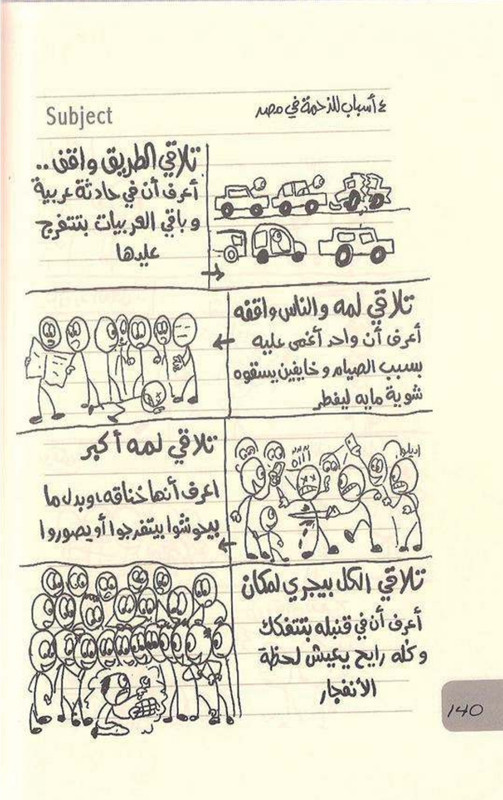 Subject
٤ أسباب للزحمة في مصر
تلاقي الطريق واقف..
أعرف أن في حادثة عربية
و باقي العربيات بتتفرج
عليها
تلاقي لمه والناس واقفه
أعرف أن واحد أغمى عليه
بسبب الصيام و خايفين يسقوه
شوية مايه ليفطر
تلاقي لمه أكبر
اعرف أنها خناقه، وبدل ما
بيحوشوا بيتفرجوا أو يصوروا
آآآه
اديلو
تلاقي الكل بيجري لمكان
أعرف أن في قنبله بتتفكك
و كله رايح يعيش لحظة
الأنفجار
140